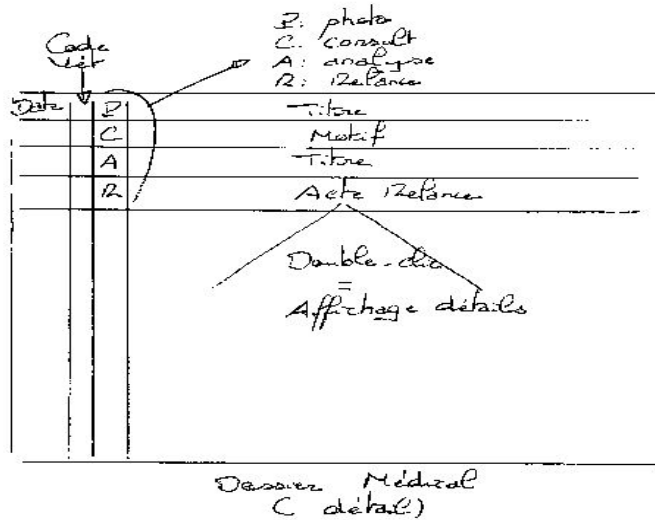 P: photo
C: consult
A: analyse
R: Relance
Code
Vét
Date P Titre
C Motif
A Titre
R Acte Relance
Double-clic
=
Affichage détails
Dossier Médical
( détail)